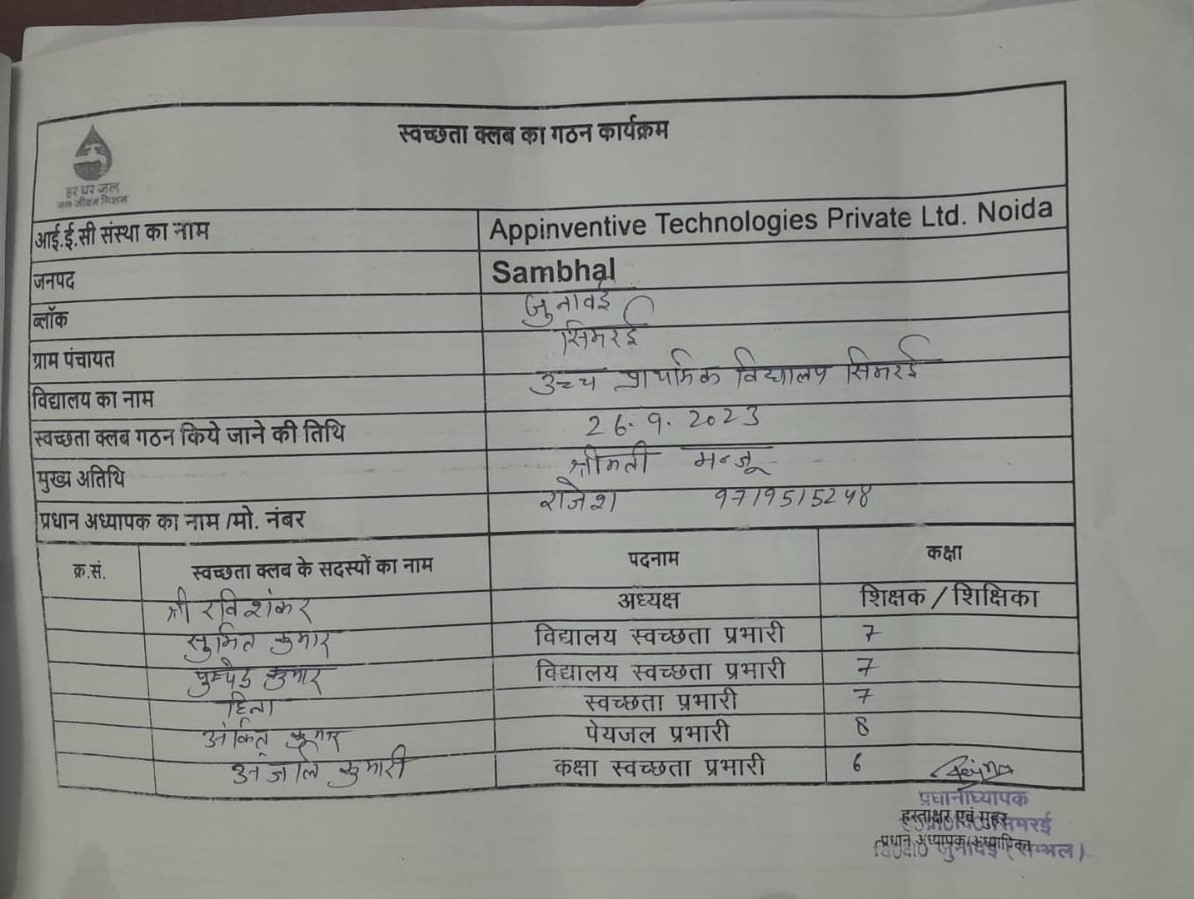 स्वच्छता क्लब का गठन कार्यक्रम
हर घर जल
जल जीवन मिशन
आई.ई.सी संस्था का नाम Appinventive Technologies Private Ltd. Noida
जनपद Sambhal
ब्लॉक जुनावई
ग्राम पंचायत सिमरई
विद्यालय का नाम उच्च प्राथमिक विद्यालय सिमरई
स्वच्छता क्लब गठन किये जाने की तिथि 26.9.2023
मुख्य अतिथि श्रीमती मन्जू
प्रधान अध्यापक का नाम /मो. नंबर राजेश 9719515248
क्र.सं. स्वच्छता क्लब के सदस्यों का नाम पदनाम कक्षा
श्री रविशंकर अध्यक्ष शिक्षक / शिक्षिका
सुमित कुमार विद्यालय स्वच्छता प्रभारी 7
कुमार विद्यालय स्वच्छता प्रभारी 7
हिना स्वच्छता प्रभारी 7
अंकित कुमार पेयजल प्रभारी 8
अंजलि कुमारी कक्षा स्वच्छता प्रभारी 6
प्रधानाध्यापक
हस्ताक्षर एवं मुहर
सिमरई
प्रधान अध्यापक/अध्यापिका
जुनावई (सम्भल)